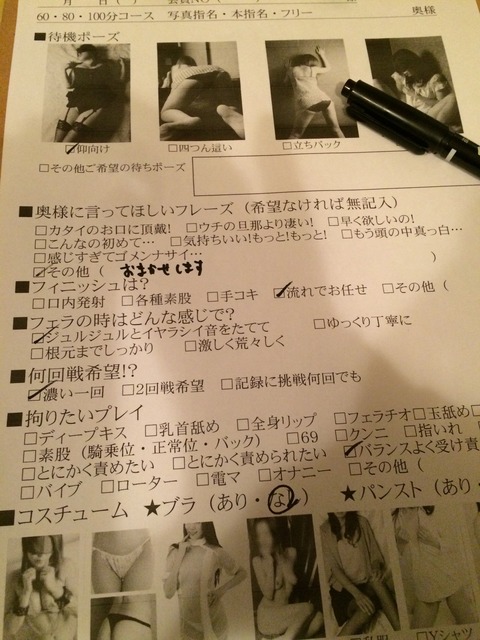 月 日( ) 会員NO( 様
60・80・100分コース 写真指名・本指名・フリー 奥様
■待機ポーズ
☑仰向け □四つん這い □立ちバック
□その他ご希望の待ちポーズ
■奥様に言ってほしいフレーズ(希望なければ無記入)
□カタイのお口に頂戴! □ウチの旦那より凄い! □早く欲しいの!
□こんなの初めて… □気持ちいい!もっと!もっと! □もう頭の中真っ白…
□感じすぎてゴメンナサイ…
☑その他( おまかせします )
■フィニッシュは?
□口内発射 □各種素股 □手コキ ☑流れでお任せ □その他(
■フェラの時はどんな感じで?
☑ジュルジュルとイヤラシイ音をたてて □ゆっくり丁寧に
□根元までしっかり □激しく荒々しく
■何回戦希望!?
☑濃い一回 □2回戦希望 □記録に挑戦何回でも
■拘りたいプレイ
□ディープキス □乳首舐め □全身リップ □フェラチオ □玉舐め
□素股(騎乗位・正常位・バック) □69 □クンニ □指いれ
□とにかく責めたい □とにかく責められたい ☑バランスよく受け責
□バイブ □ローター □電マ □オナニー □その他(
■コスチューム ★ブラ(あり・なし) ★パンスト(あり・
□Yシャツ